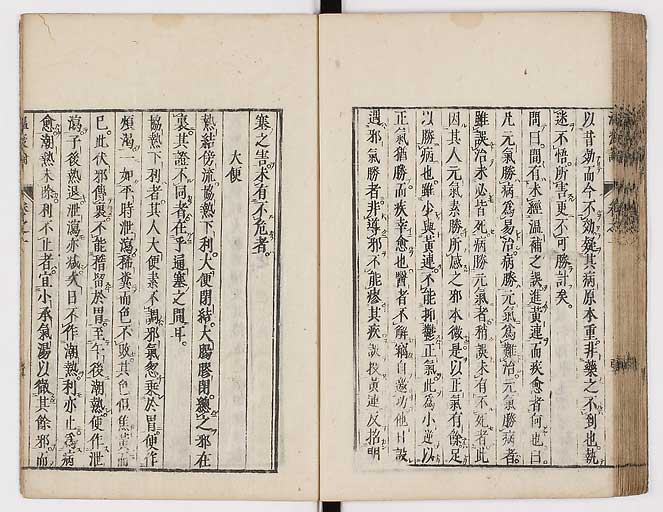 以昔効而今不効疑其病原本重非藥之不到也執
迷不悟所害更不可勝計矣。
問曰間有未經溫補之誤進黃連而疾愈者何也曰
凡元氣勝病為易治病勝元氣為難治元氣勝病者
雖誤治未必皆死病勝元氣者稍誤未有不死者此
因其人元氣素勝所感之邪本微是以正氣有餘足
以勝病也雖少與黃連不能抑鬱正氣此為小逆以
正氣猶勝而疾幸愈也醫者不解竊自邀功他日設
遇邪氣勝者非導邪不能瘳其疾誤投黃連反招明
寒之害未有不危者。
大便
熱結傍流協熱下利大便閉結大腸膠閉總之邪在
裏其證不同者在乎通塞之間耳
協熱下利者其人大便素不調邪氣忽乘於胃便作
煩渴一如平時泄瀉稀糞而色不敗其色但焦黃而
已此伏邪傳裏不能稽留於胃至午後潮熱便作泄
瀉子後熱退泄瀉亦減次日不作潮熱利亦止為病
愈潮熱未除利不止者宜小承氣湯以徹其餘邪而